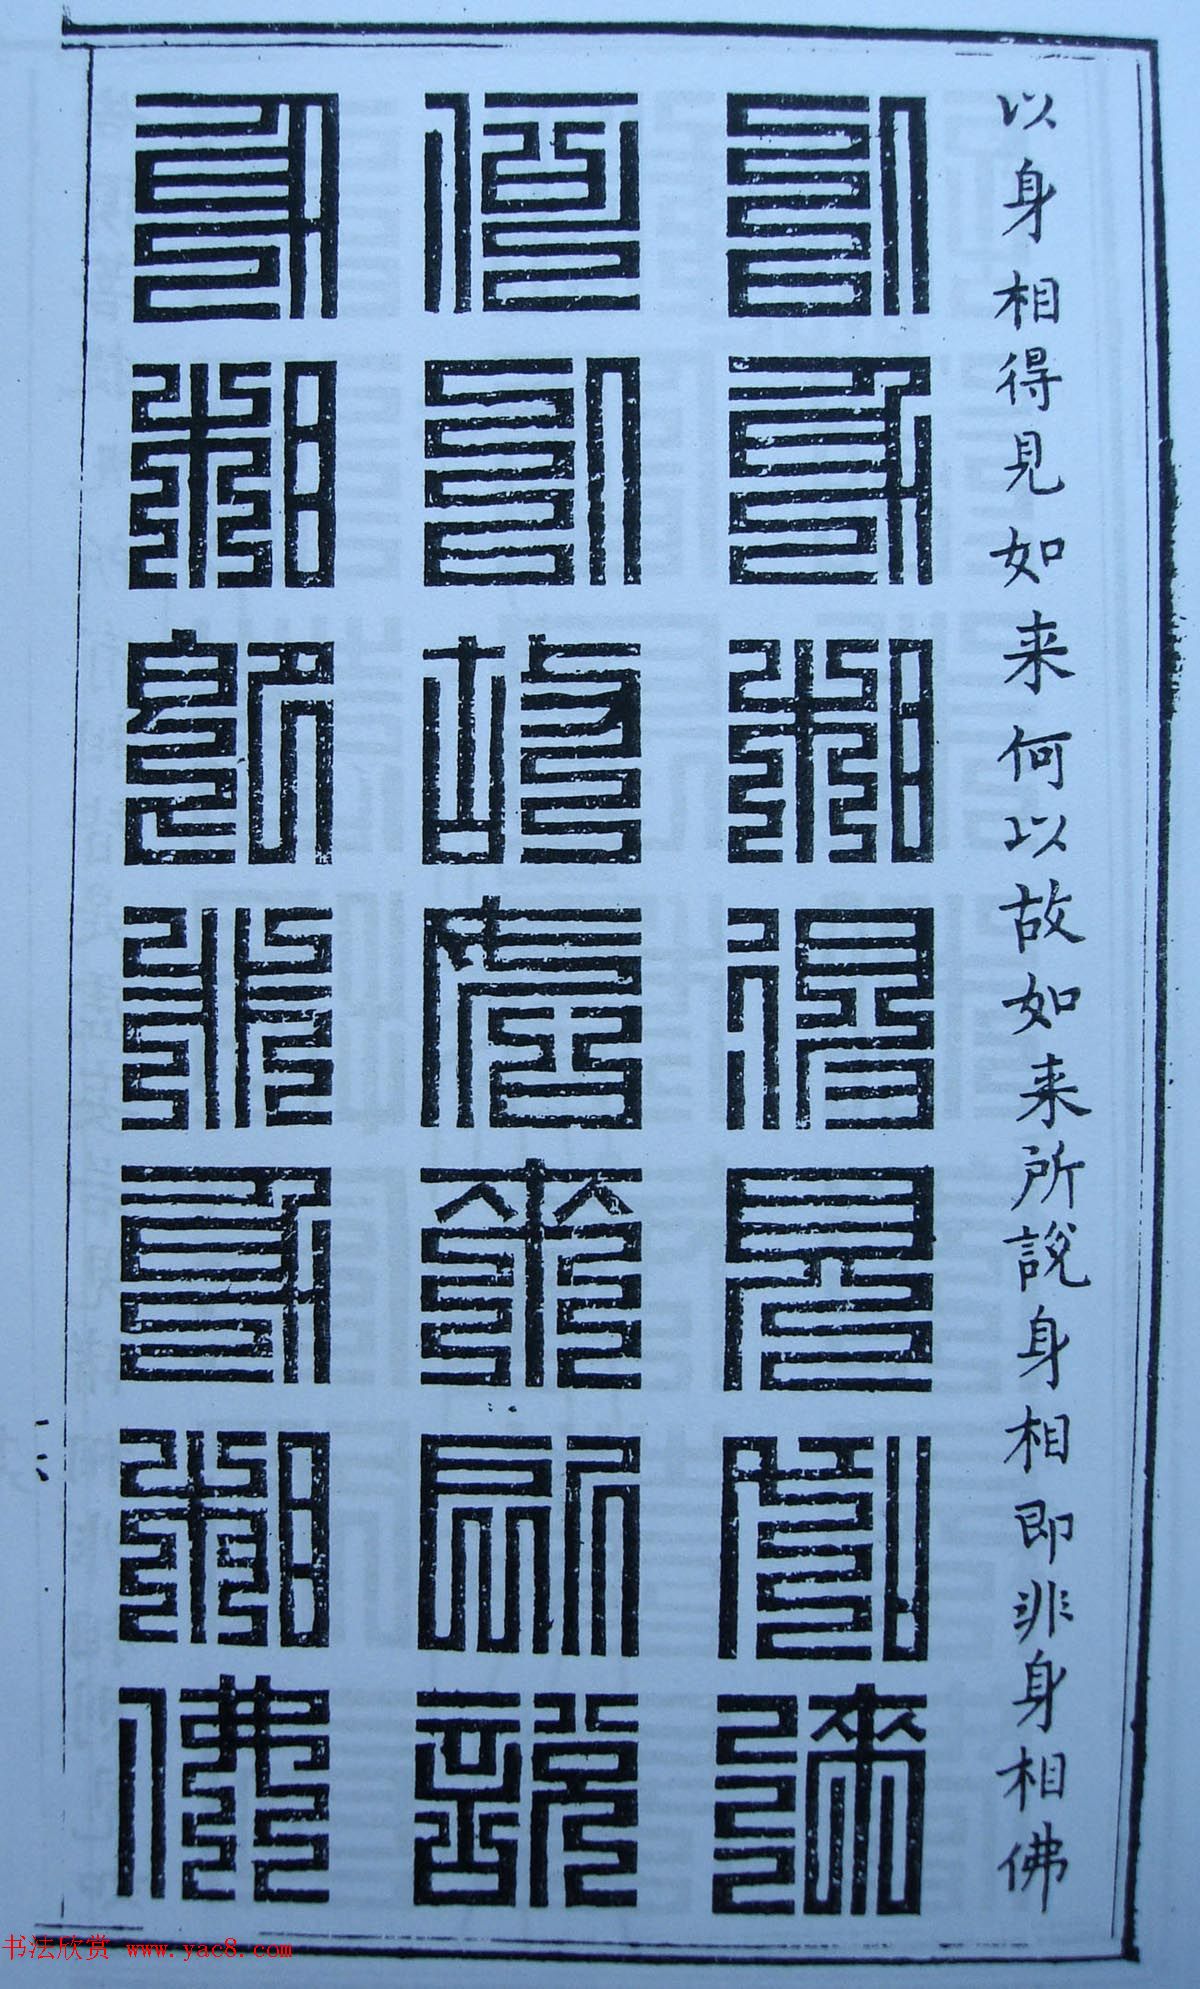 以身相得見如来何以故如来所說身相即非身相佛
以身相得見如来
何以故如来所說
身相即非身相佛
书法欣赏 www.yac8.com